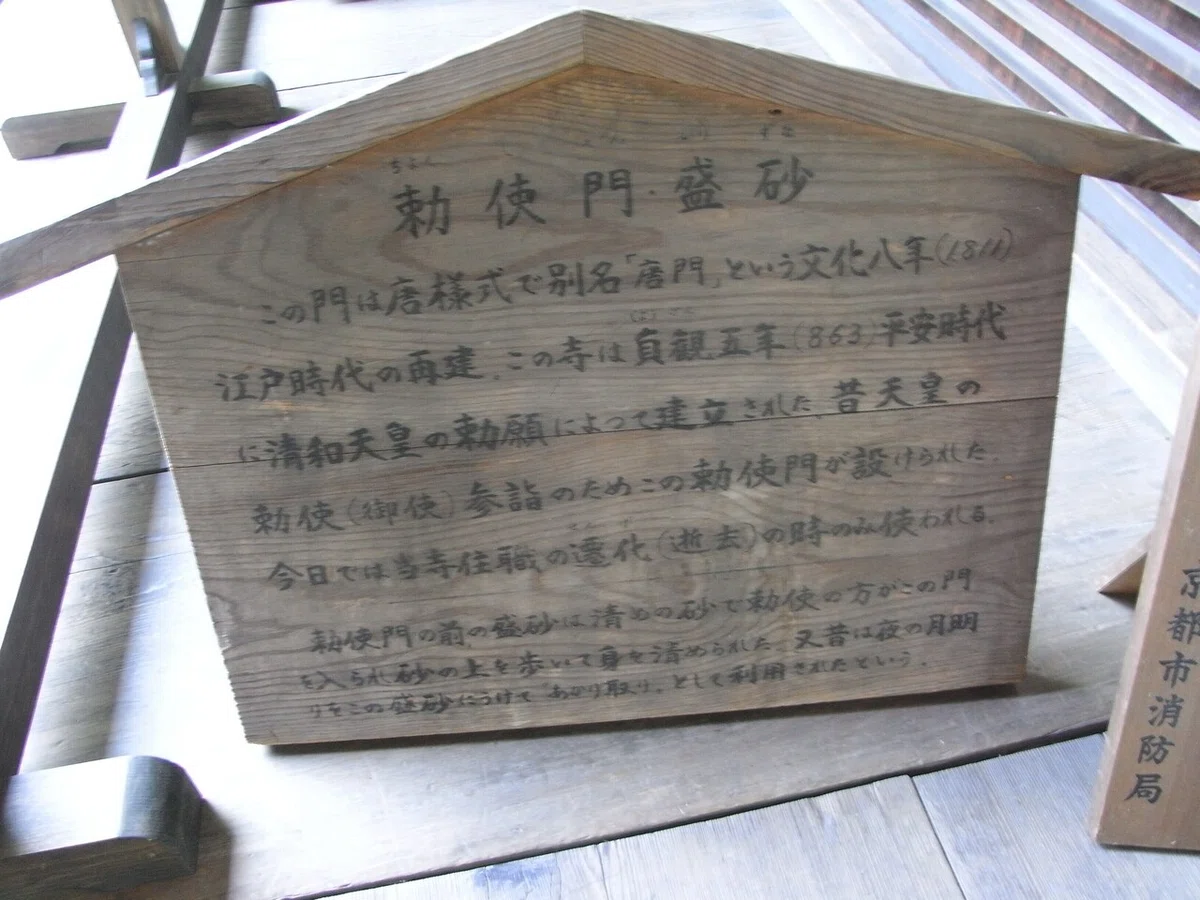 ちょく
勅使門・盛砂
この門は唐様式で別名「唐門」という文化八年(1811)
江戸時代の再建、この寺は貞観五年(863)平安時代
に清和天皇の勅願によって建立された 昔天皇の
勅使(御使)参詣のためこの勅使門が設けられた、
今日では当寺住職の遷化(逝去)の時のみ使われる、
勅使門の前の盛砂は清めの砂で勅使の方がこの門
を入られ砂の上を歩いて身を清められた、又昔は夜の月明
りをこの盛砂にうけて「あかり取り」として利用されたという、
京都市消防局